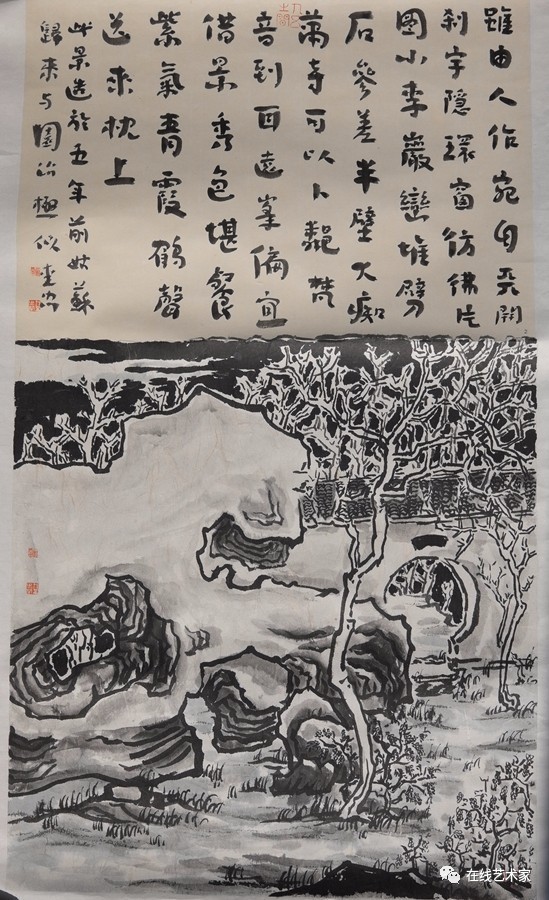 雖由人作宛自天開
刹宇隱環窗彷彿片
圖小李巖巒堆劈
石參差半壁大痴
蕭寺可以卜鄰梵
音到耳遠峯偏宜
借景秀色堪餐
紫氣青霞鶴聲
送來枕上
此景造於五年前姑蘇
歸來与園冶極似
在线艺术家